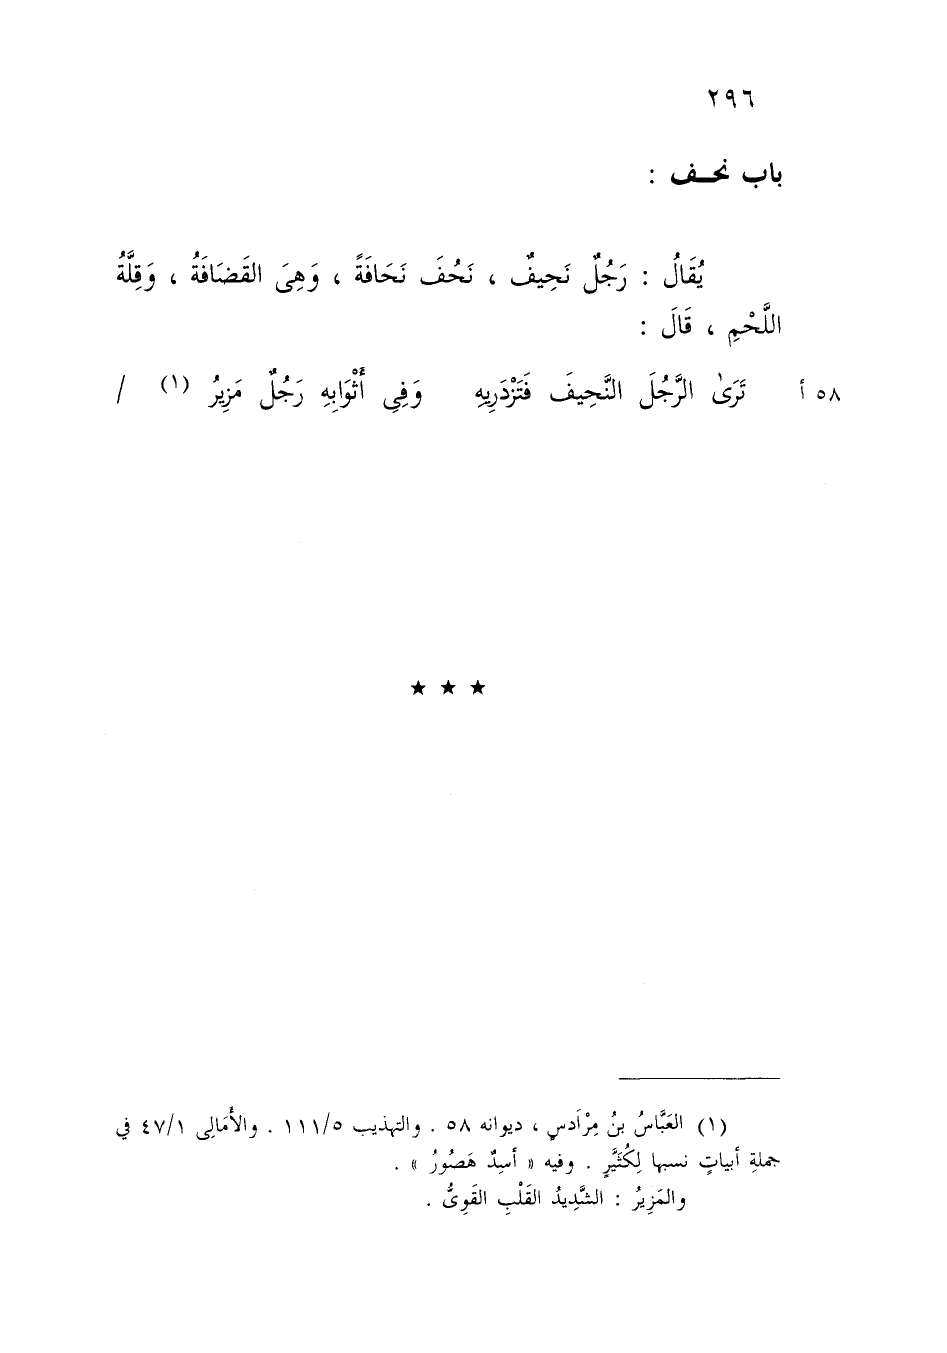 ٢٩٦
باب نحـف :
يُقَالُ : رَجُلٌ نَحِيفٌ ، نَحُفَ نَحَافَةً ، وَهِىَ القَضَافَةُ ، وَقِلَّةُ
اللَّحْمِ ، قَالَ :
٥٨ أ تَرَىٰ الرَّجُلَ النَّحِيفَ فَتَزْدَرِيهِ وَفِي أَثْوَابِهِ رَجُلٌ مَزِيرُ (١) /
★ ★ ★
(١) العَبَّاسُ بنُ مِرْدَاسٍ ، ديوانه ٥٨ . والتهذيب ١١١/٥ . والأَمَالِى ٤٧/١ في
جملةِ أبياتٍ نسبها لِكُثَيَّرٍ . وفيه « أسِدٌ هَصُورُ » .
والمَزِيرُ : الشَّدِيدُ القَلْبِ القَوِىُّ .